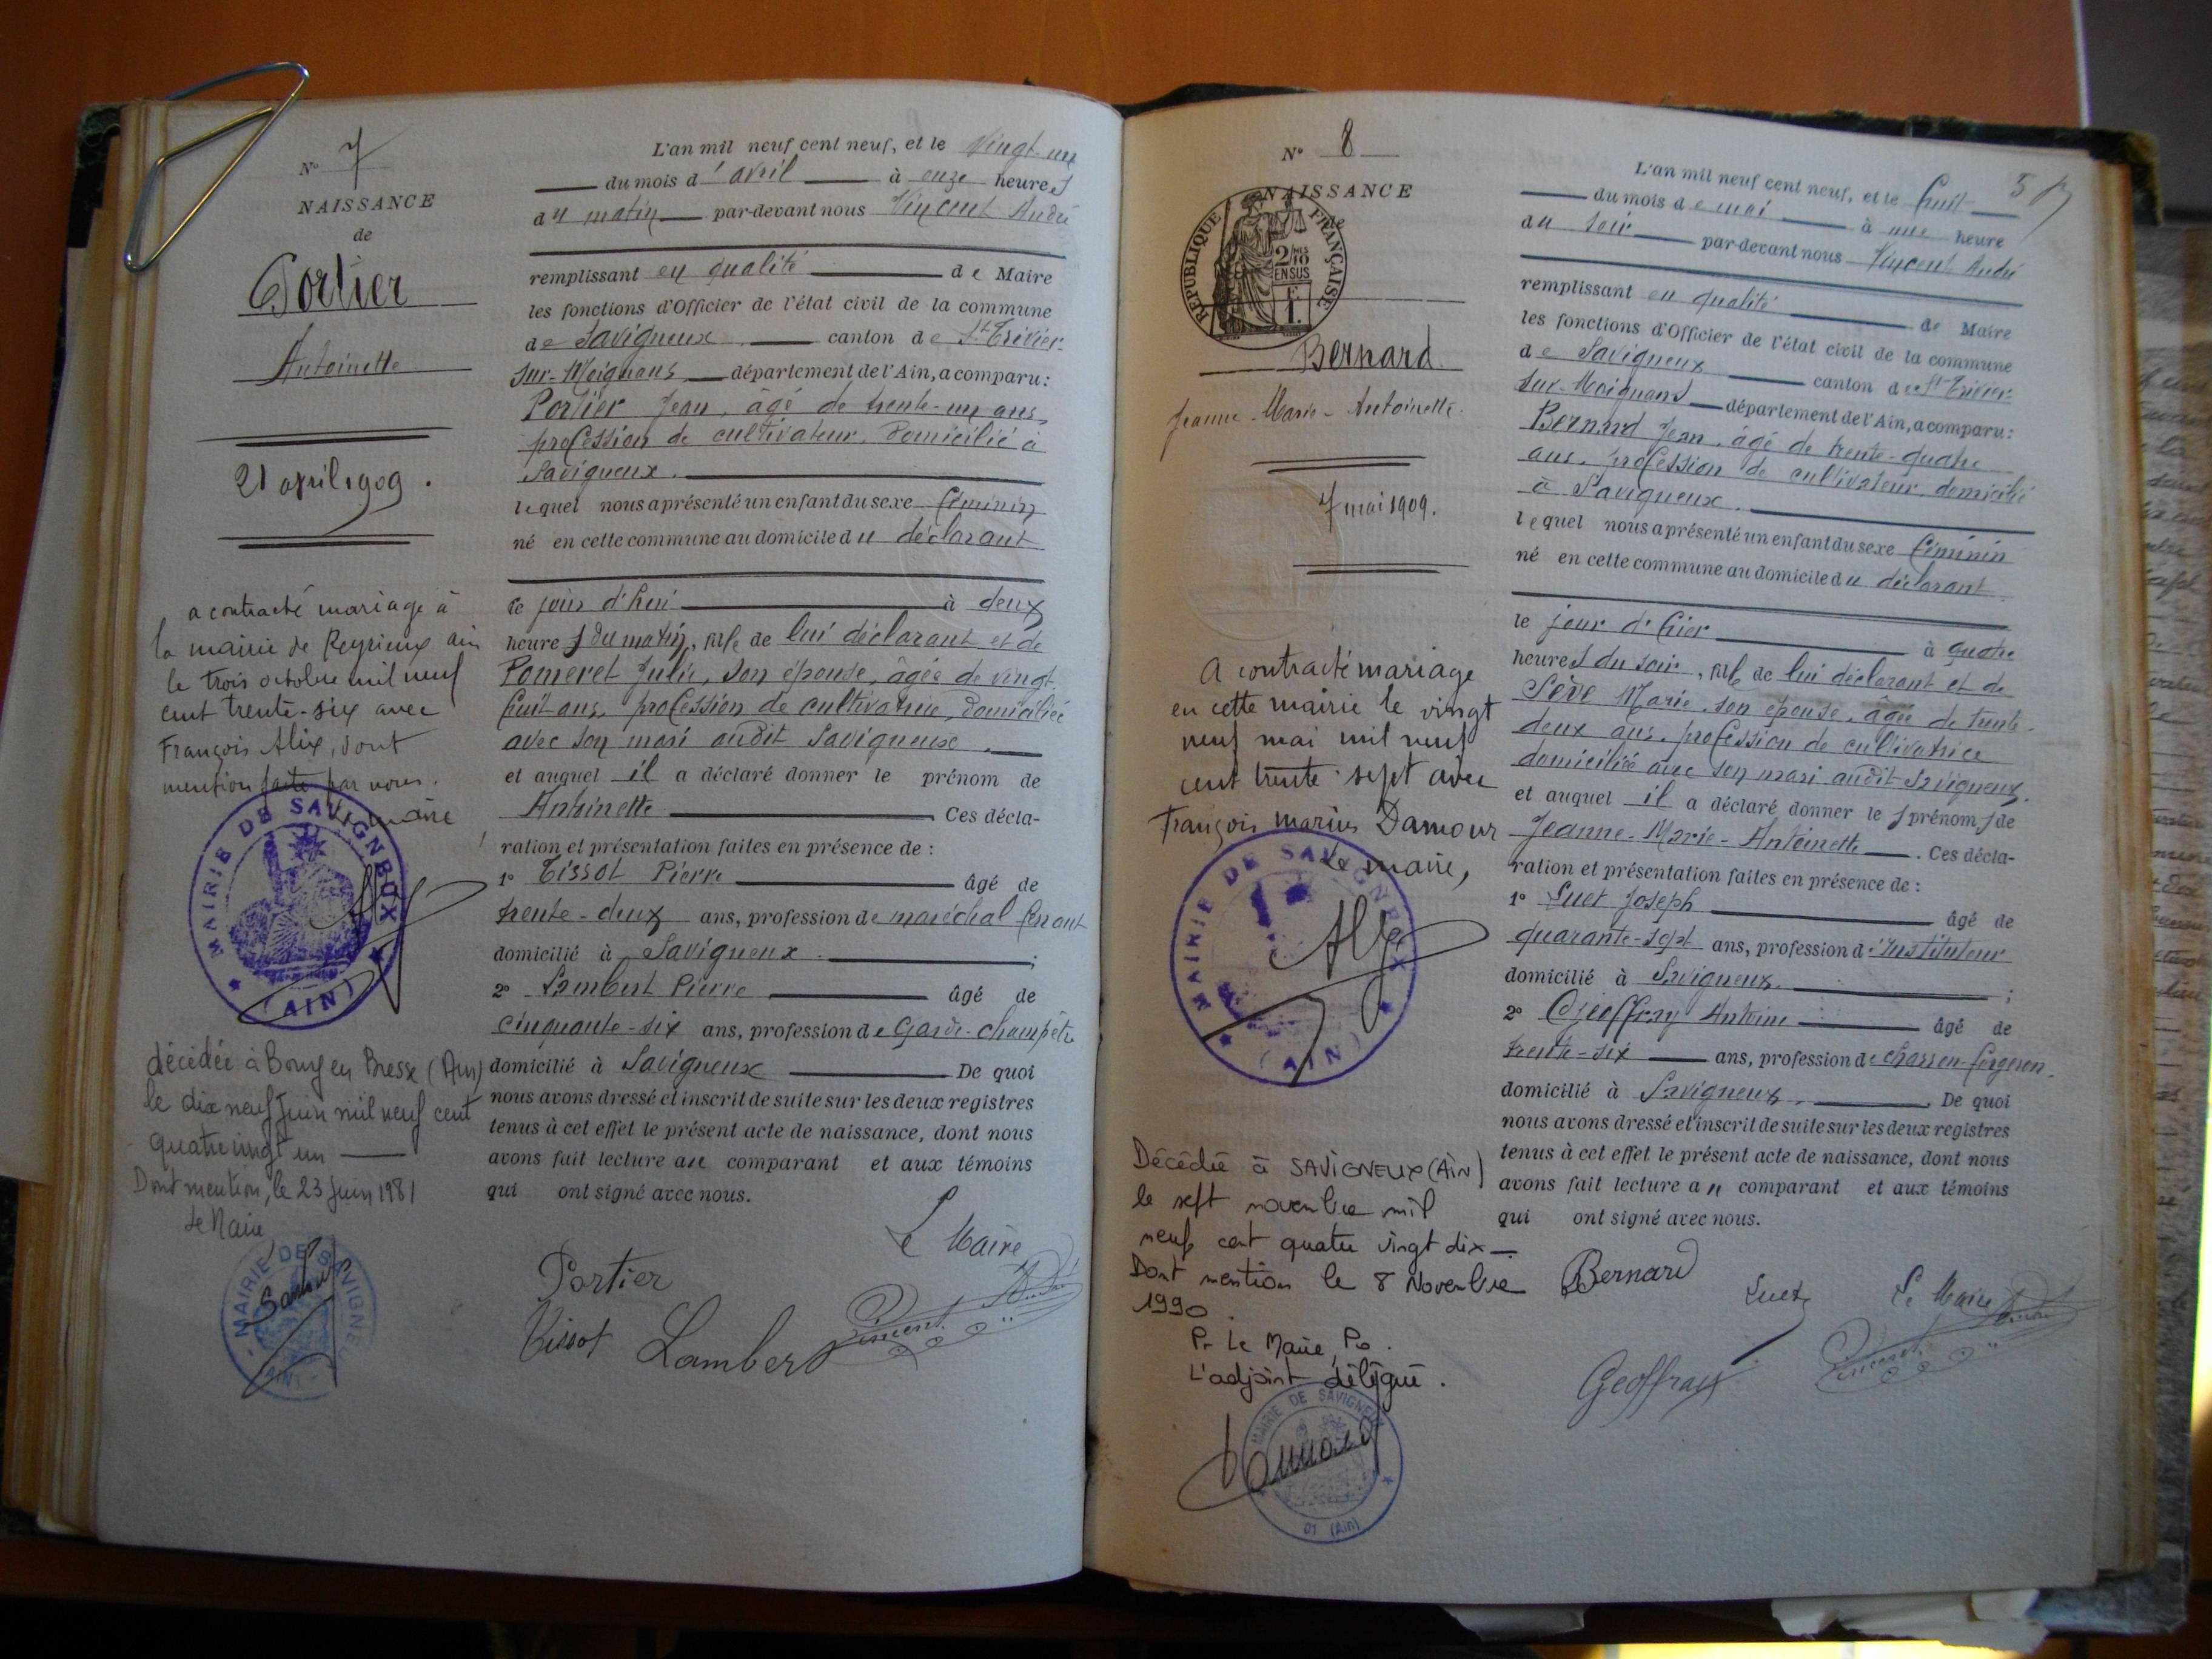 N° 7
NAISSANCE
de
Portier
Antoinette
21 avril 1909.
a contracté mariage à
la mairie de Reyrieux ain
le trois octobre mil neuf
cent trente-six avec
François Alix, dont
mention faite par nous.
maire
MAIRIE DE SAVIGNEUX
(AIN)
décédée à Bourg en Bresse (Ain)
le dix neuf Juin mil neuf cent
quatre vingt un
Dont mention, le 23 Juin 1981
Le Maire
MAIRIE DE SAVIGNEUX
AIN
L'an mil neuf cent neuf, et le vingt-un
du mois d'avril à onze heures
du matin par-devant nous Vincent André
remplissant en qualité de Maire
les fonctions d'Officier de l'état civil de la commune
de Savigneux canton de St Trivier-
sur-Moignans département de l'Ain, a comparu:
Portier Jean, âgé de trente-un ans,
profession de cultivateur, domicilié à
Savigneux.
lequel nous a présenté un enfant du sexe féminin
né en cette commune au domicile du déclarant
ce jour d'hui à deux
heures du matin, fille de lui déclarant et de
Pomeret Julie, son épouse, âgée de vingt
huit ans, profession de cultivatrice, domiciliée
avec son mari audit Savigneux.
et auquel il a déclaré donner le prénom de
Antoinette Ces décla-
ration et présentation faites en présence de:
1° Tissot Pierre âgé de
trente-deux ans, profession de maréchal ferrant
domicilié à Savigneux ;
2° Lambert Pierre âgé de
cinquante-six ans, profession de Garde-champêtre
domicilié à Savigneux De quoi
nous avons dressé et inscrit de suite sur les deux registres
tenus à cet effet le présent acte de naissance, dont nous
avons fait lecture au comparant et aux témoins
qui ont signé avec nous.
Le Maire
Portier
Tissot Lambert Vincent André
N° 8
NAISSANCE
de
REPUBLIQUE FRANÇAISE
2/10 EN SUS
Bernard
Jeanne-Marie-Antoinette.
7 mai 1909.
A contracté mariage
en cette mairie le vingt
neuf mai mil neuf
cent trente-sept avec
François marius Damour
Le maire,
MAIRIE DE SAVIGNEUX
(AIN)
Décédée à SAVIGNEUX (AIN)
le sept novembre mil
neuf cent quatre vingt dix
Dont mention le 8 Novembre
1990.
Pr Le Maire, Po.
L'adjoint délégué.
MAIRIE DE SAVIGNEUX
01 (Ain)
57
L'an mil neuf cent neuf, et le huit
du mois de mai à une heure
du soir par-devant nous Vincent André
remplissant en qualité de Maire
les fonctions d'Officier de l'état civil de la commune
de Savigneux canton de St Trivier-
sur-Moignans département de l'Ain, a comparu:
Bernard Jean, âgé de trente-quatre
ans, profession de cultivateur, domicilié
à Savigneux.
lequel nous a présenté un enfant du sexe féminin
né en cette commune au domicile du déclarant
le jour d'hier à quatre
heures du soir, fille de lui déclarant et de
Sève Marie, son épouse, âgée de trente-
deux ans, profession de cultivatrice
domiciliée avec son mari audit Savigneux.
et auquel il a déclaré donner les prénoms de
Jeanne-Marie-Antoinette. Ces décla-
ration et présentation faites en présence de:
1° Luet Joseph âgé de
quarante-sept ans, profession d'Instituteur
domicilié à Savigneux. ;
2° Geoffray Antoine âgé de
trente-six ans, profession de charron-forgeron
domicilié à Savigneux. De quoi
nous avons dressé et inscrit de suite sur les deux registres
tenus à cet effet le présent acte de naissance, dont nous
avons fait lecture au comparant et aux témoins
qui ont signé avec nous.
Bernard Luet Le Maire
Geoffray Vincent André